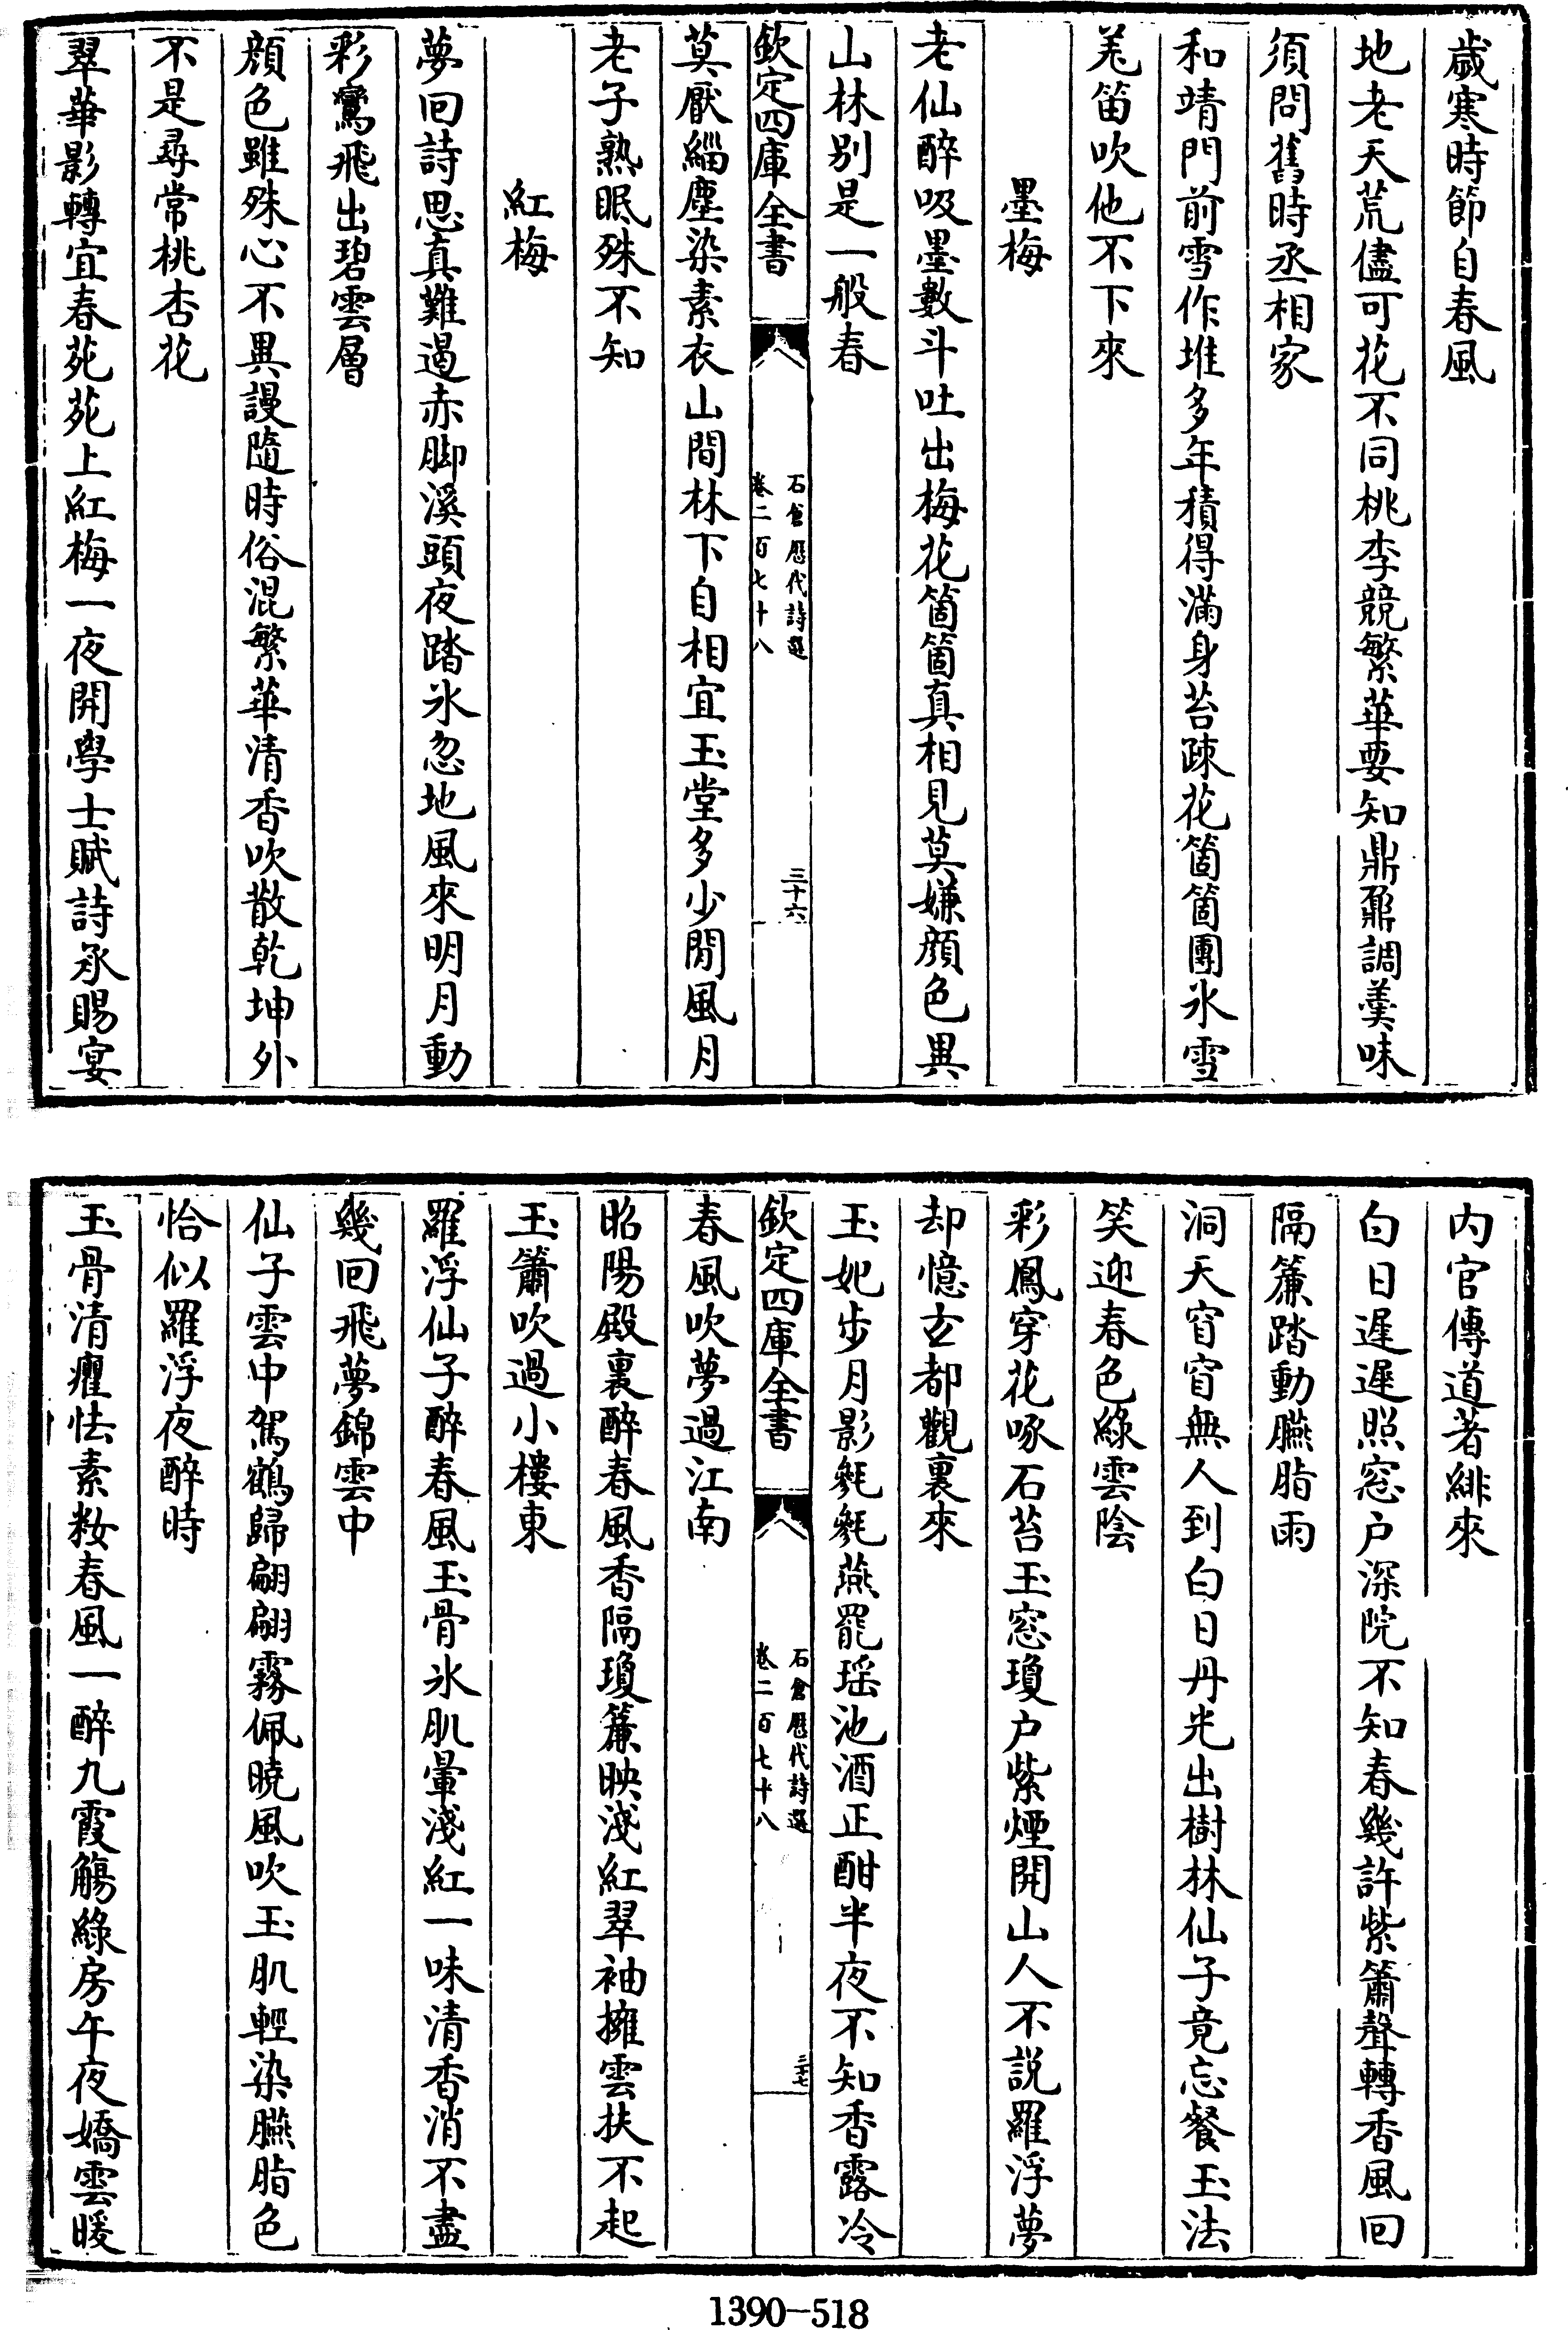 歲寒時節自春風
地老天荒儘可花不同桃李競繁華要知鼎鼐調羹味
須問舊時丞相家
和靖門前雪作堆多年積得滿身苔疎花箇箇團氷雪
羌笛吹他不下來
墨梅
老仙醉吸墨數斗吐出梅花箇箇真相見莫嫌顔色異
山林别是一般春
欽定四庫全書
石倉歷代詩選
卷二百七十八
三十六
莫厭緇塵染素衣山間林下自相宜玉堂多少閒風月
老子熟眠殊不知
紅梅
夢回詩思真難遏赤脚溪頭夜踏氷忽地風來明月動
彩鸞飛出碧雲層
顔色雖殊心不異謾隨時俗混繁華清香吹散乾坤外
不是尋常桃杏花
翠華影轉宜春苑苑上紅梅一夜開學士賦詩承賜宴
内官傳道著緋來
白日遲遲照窓户深院不知春幾許紫簫聲轉香風回
隔簾踏動臙脂雨
洞天窅窅無人到白日丹光出樹林仙子竟忘餐玉法
笑迎春色緑雲陰
彩鳳穿花啄石苔玉窓瓊户紫煙開山人不説羅浮夢
却憶玄都觀裏來
玉妃步月影毿毿燕罷瑶池酒正酣半夜不知香露冷
欽定四庫全書
石倉歷代詩選
卷二百七十八
三十七
春風吹夢過江南
昭陽殿裏醉春風香隔瓊簾映淺紅翠袖擁雲扶不起
玉簫吹過小樓東
羅浮仙子醉春風玉骨氷肌暈淺紅一味清香消不盡
幾回飛夢錦雲中
仙子雲中駕鶴歸翩翩霧佩曉風吹玉肌輕染臙脂色
恰似羅浮夜醉時
玉骨清癯怯素粧春風一醉九霞觴緑房午夜嬌雲暖
1390-518